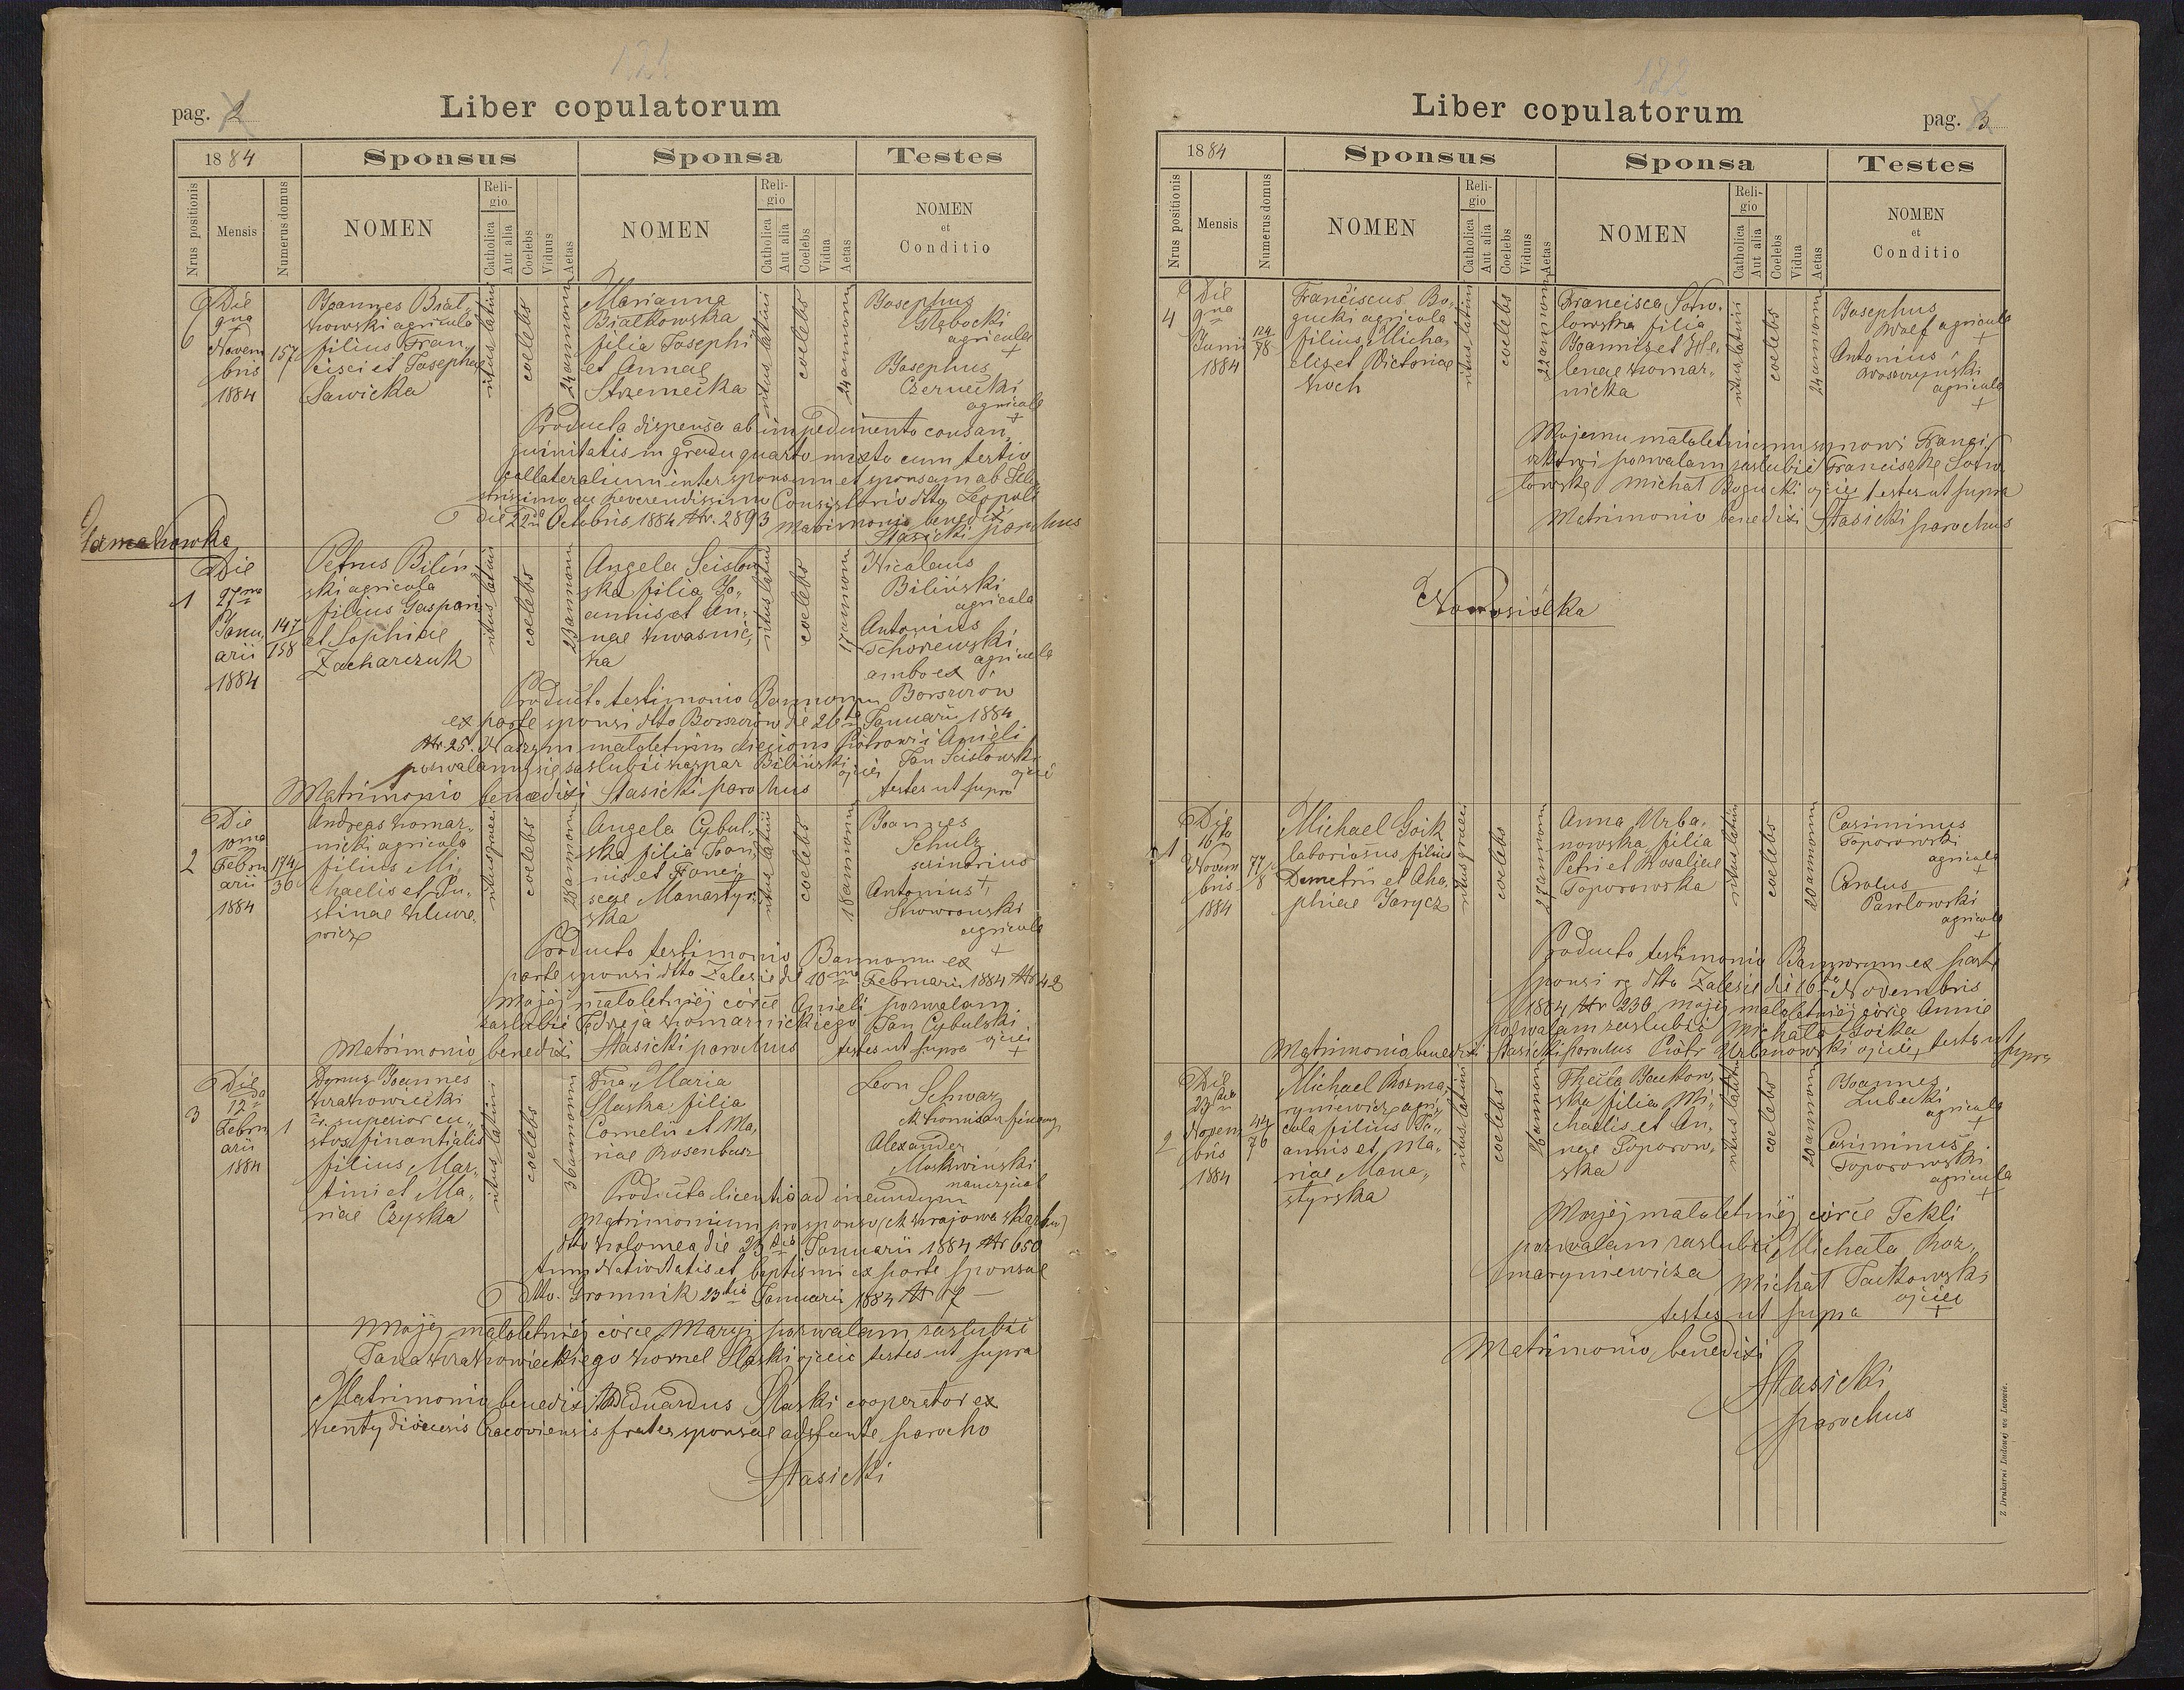 121
pag. 2
Liber copulatorum
1884
Sponsus
Sponsa
Testes
Nrus positionis
Mensis
Numerus domus
NOMEN
Religio
Catholica
Aut alia
Coelebs
Viduus
Aetas
NOMEN
Religio
Catholica
Aut alia
Coelebs
Vidua
Aetas
NOMEN
et
Conditio
6
Die
9na
Novem
bris
1884
157
Joannes Biał,,
kowski agricola
filius Fran,,
cisci et Josepha
Sawicka
ritus latini
coelebs
24 annorum
Marianna
Białkowska
filia Josephi
et Annae
Strzemecka
ritus latini
coelebs
24 annorum
Josephus
Głębocki
agricola
+
Josephus
Czernecki
agricola
+
Producta dispensa ab impedimento consan,,
guinitatis in gradu quarto mixto cum tertio
collateralium inter sponsum et sponsam ab Illu
strissimo ac Reverendissimo Consistorio dtto Leopoli
die 22da Octobris 1884 Nr. 2893 Matrimonio benedixi
Stasicki parochus
1
Die
27ma
Janu,,
arii
1884
147
158
Petrus Biliń
ski agricola
filius Gaspari
et Sophiae
Zacharczuk
ritus latini
coelebs
23 annorum
Angela Scisłow
ska filia Jo,,
annis et An,,
nae Kwaśnic,,
ka
ritus latini
coelebs
17 annorum
Nicolaus
Biliński
agricola
Antonius
Tchorewski
agricola
ambo ex
Borszczów
Producto testimonio Bannorum
ex parte sponsi dtto Borszczów die 26ta Januarii 1884
Nr. 25. Naszym małoletnim dzieciom Piotrowi i Anieli
pozwalamy się zaślubić Kaspar Biliński ojciec Jan Scisłowski ojciec
Matrimonio benedixi Stasicki parochus testes ut supra
2
Die
10ma
Febru
arii
1884
174
36
Andreas Komar,,
nicki agricola
filius Mi,,
chaelis et Ju,,
stinae Klure,,
wicz
ritus graeci
coelebs
28 annorum
Angela Cybul,,
ska filia Joan,,
nis et Franci,,
scae Monastyr,,
ska
ritus latini
coelebs
18 annorum
Joannes
Schulz
scriniarius
+
Antonius
Skowronski
agricola
+
Producto testimonio Bannorum ex
parte sponsi dtto Zalesie de 10ma Februarii 1884 Nr 42
Mojej małoletniej córce Anieli pozwalam
zaślubić Jędrzeja Komarnickiego Jan Cybulski
ojciec
+
Matrimonio benedixi Stasicki parochus testes ut supra
3
Die
12da
Febru
arii
1884
1
Dnus Joannes
Krakowiecki
c. r. superior cu,,
stos finantialis
filius Mar,,
tini et Ma,,
riae Czyska
ritus latini
coelebs
36 annorum
Dna Maria
Slaska filia
Cornelii et Ma,,
riae Rosenbusz
Leon
Schwarz
Alexander
Moskwiński
nauczyciel
Producta licentia ad ineundum
Matrimonium pro sponso
dtto Kolomea die 23tia Januarii 1884 Nr 650
tum Nativitatis et baptismi ex parte sponsae
dtto. Gromnik 23tia Januarii 1884 Nr 7
Mojej małoletniej córce Maryi pozwalam zaślubić
Jana Krakowieckiego Kornel Slaski ojciec testes ut supra
Matrimonio benedixit Eduardus Slaski cooperator ex
Kenty diocesis Cracoviensis frater sponsae adstante parocho
Stasicki
122
Liber copulatorum
pag. 3
1884
Sponsus
Sponsa
Testes
Nrus positionis
Mensis
Numerus domus
NOMEN
Religio
Catholica
Aut alia
Coelebs
Viduus
Aetas
NOMEN
Religio
Catholica
Aut alia
Coelebs
Vidua
Aetas
NOMEN
et
Conditio
4
Die
9na
Junii
1884
124
78
Franciscus Bo,,
gucki agricola
filius Micha,,
elis et Victoriae
Koch
ritus latini
coelebs
22 annorum
Francisca Sotw,,
łowska filia
Joannis et He,,
lenae Komar,,
nicka
ritus latini
coelebs
24 annorum
Josephus
Wolf agricola
+
Antonius
agricola
+
Mojemu małoletniemu synowi Franci
szkowi pozwalam zaślubić Franciszkę
Michał Bogucki ojciec testes ut supra
Matrimonio benedixi Stasicki parochus
Nowosiółka
1
Die
16ta
Novem
bris
1884
77
8
Michael Goik
laboriosus filius
Demetrii et Aha,,
phiae Jarycz
ritus graeci
coelebs
27 annorum
Anna Urba,,
nowska filia
Petri et Rosaliae
Toporowska
ritus latini
coelebs
20 annorum
Casimirus
Toporowski
agricola
Carolus
Pawłowski
agricola
+
Producto testimonio Bannorum ex parte
sponsi rg dtto Zalesie de 16ta Novembris
1884 Nr 230 mojej małoletniej córce Annie
pozwalam zaślubić Michała Goika
Matrimonio benedixi Stasicki parochus Piotr Urbanowski ojciec, testes ut
supra
2
Die
23tia
Novem
bris
1884
44
76
Michael Rozma,,
ryniewicz agri,,
cola filius Jo,,
annis et Ma,,
riae Mona,,
styrska
ritus latini
coelebs
26 annorum
Thecla Jackow,,
ska filia Mi,,
chaelis et An,,
nae Toporow,,
ska
ritus latini
coelebs
20 annorum
Joannes
Lubecki
agricola
+
Casimirus
Toporowski
agricola
+
Mojej małoletniej córce Tekli
pozwalam zaślubić Michała Roz,,
maryniewicza Michał Jackowski
ojciec
+
testes ut supra
Matrimonio benedixi
Stasicki
parochus
Z Drukarni Ludowej we Lwowie.